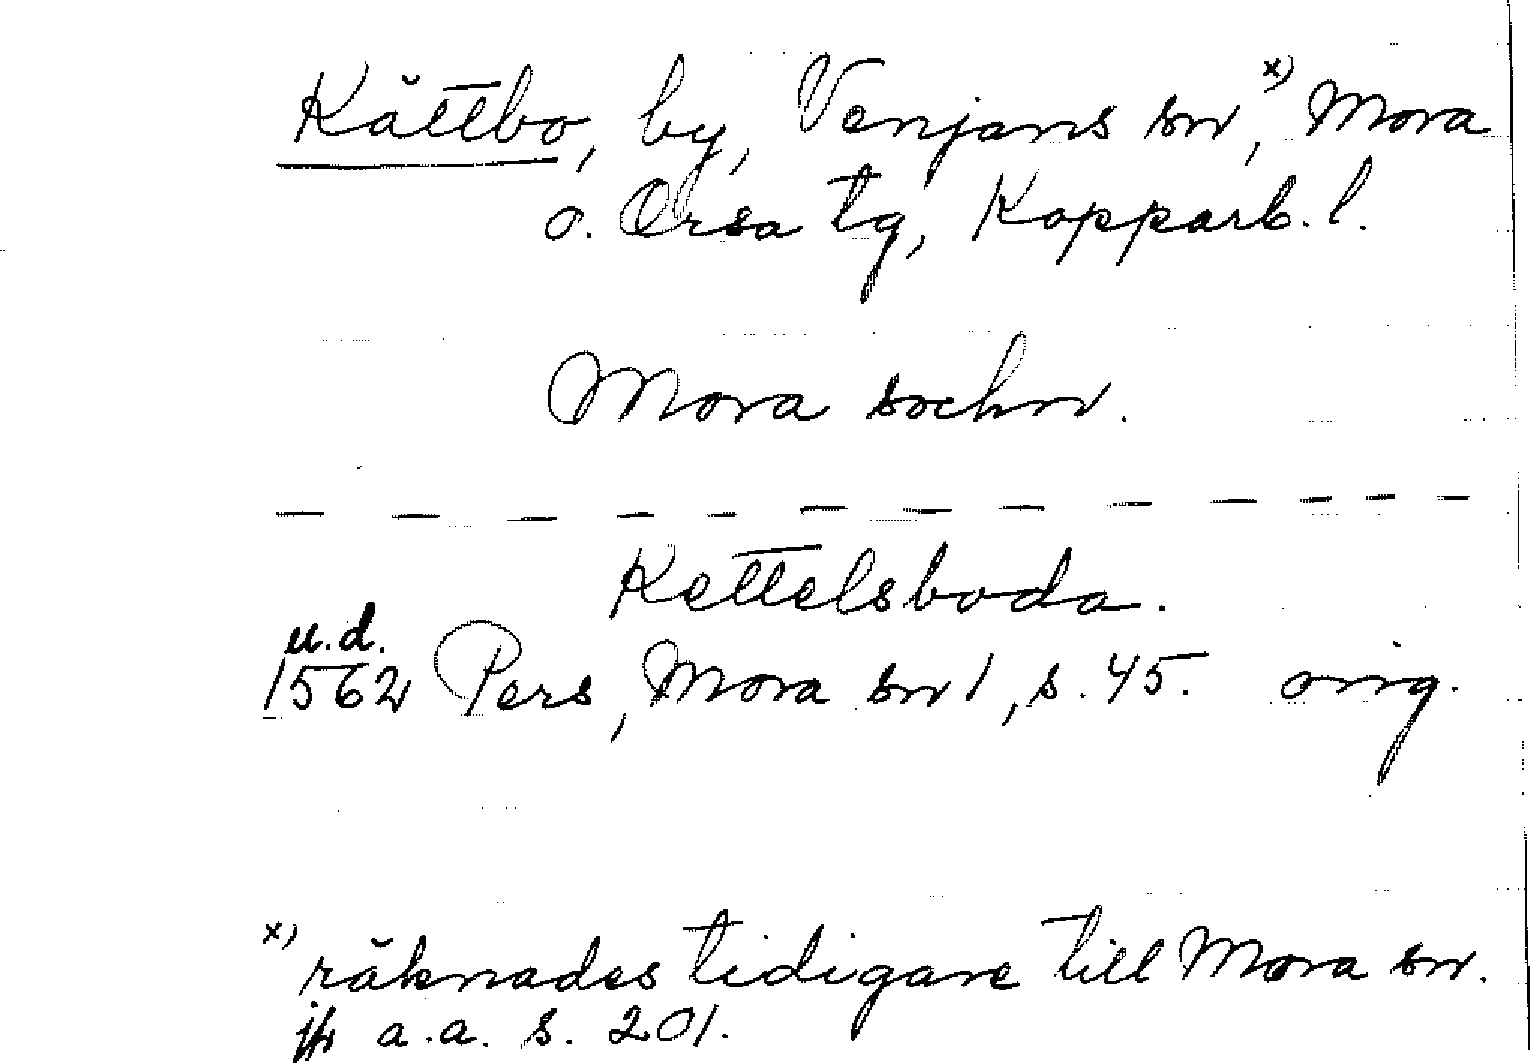 Kättbo, by, Venjans sn, x) Mora
o. Orsa tg, Kopparb. l.
Mora sochn.
Kettelsboda.
u.d.
1562 Pers, Mora sn 1, s. 45. orig.
x) räknades tidigare till Mora sn.
jfr a.a. s. 201.